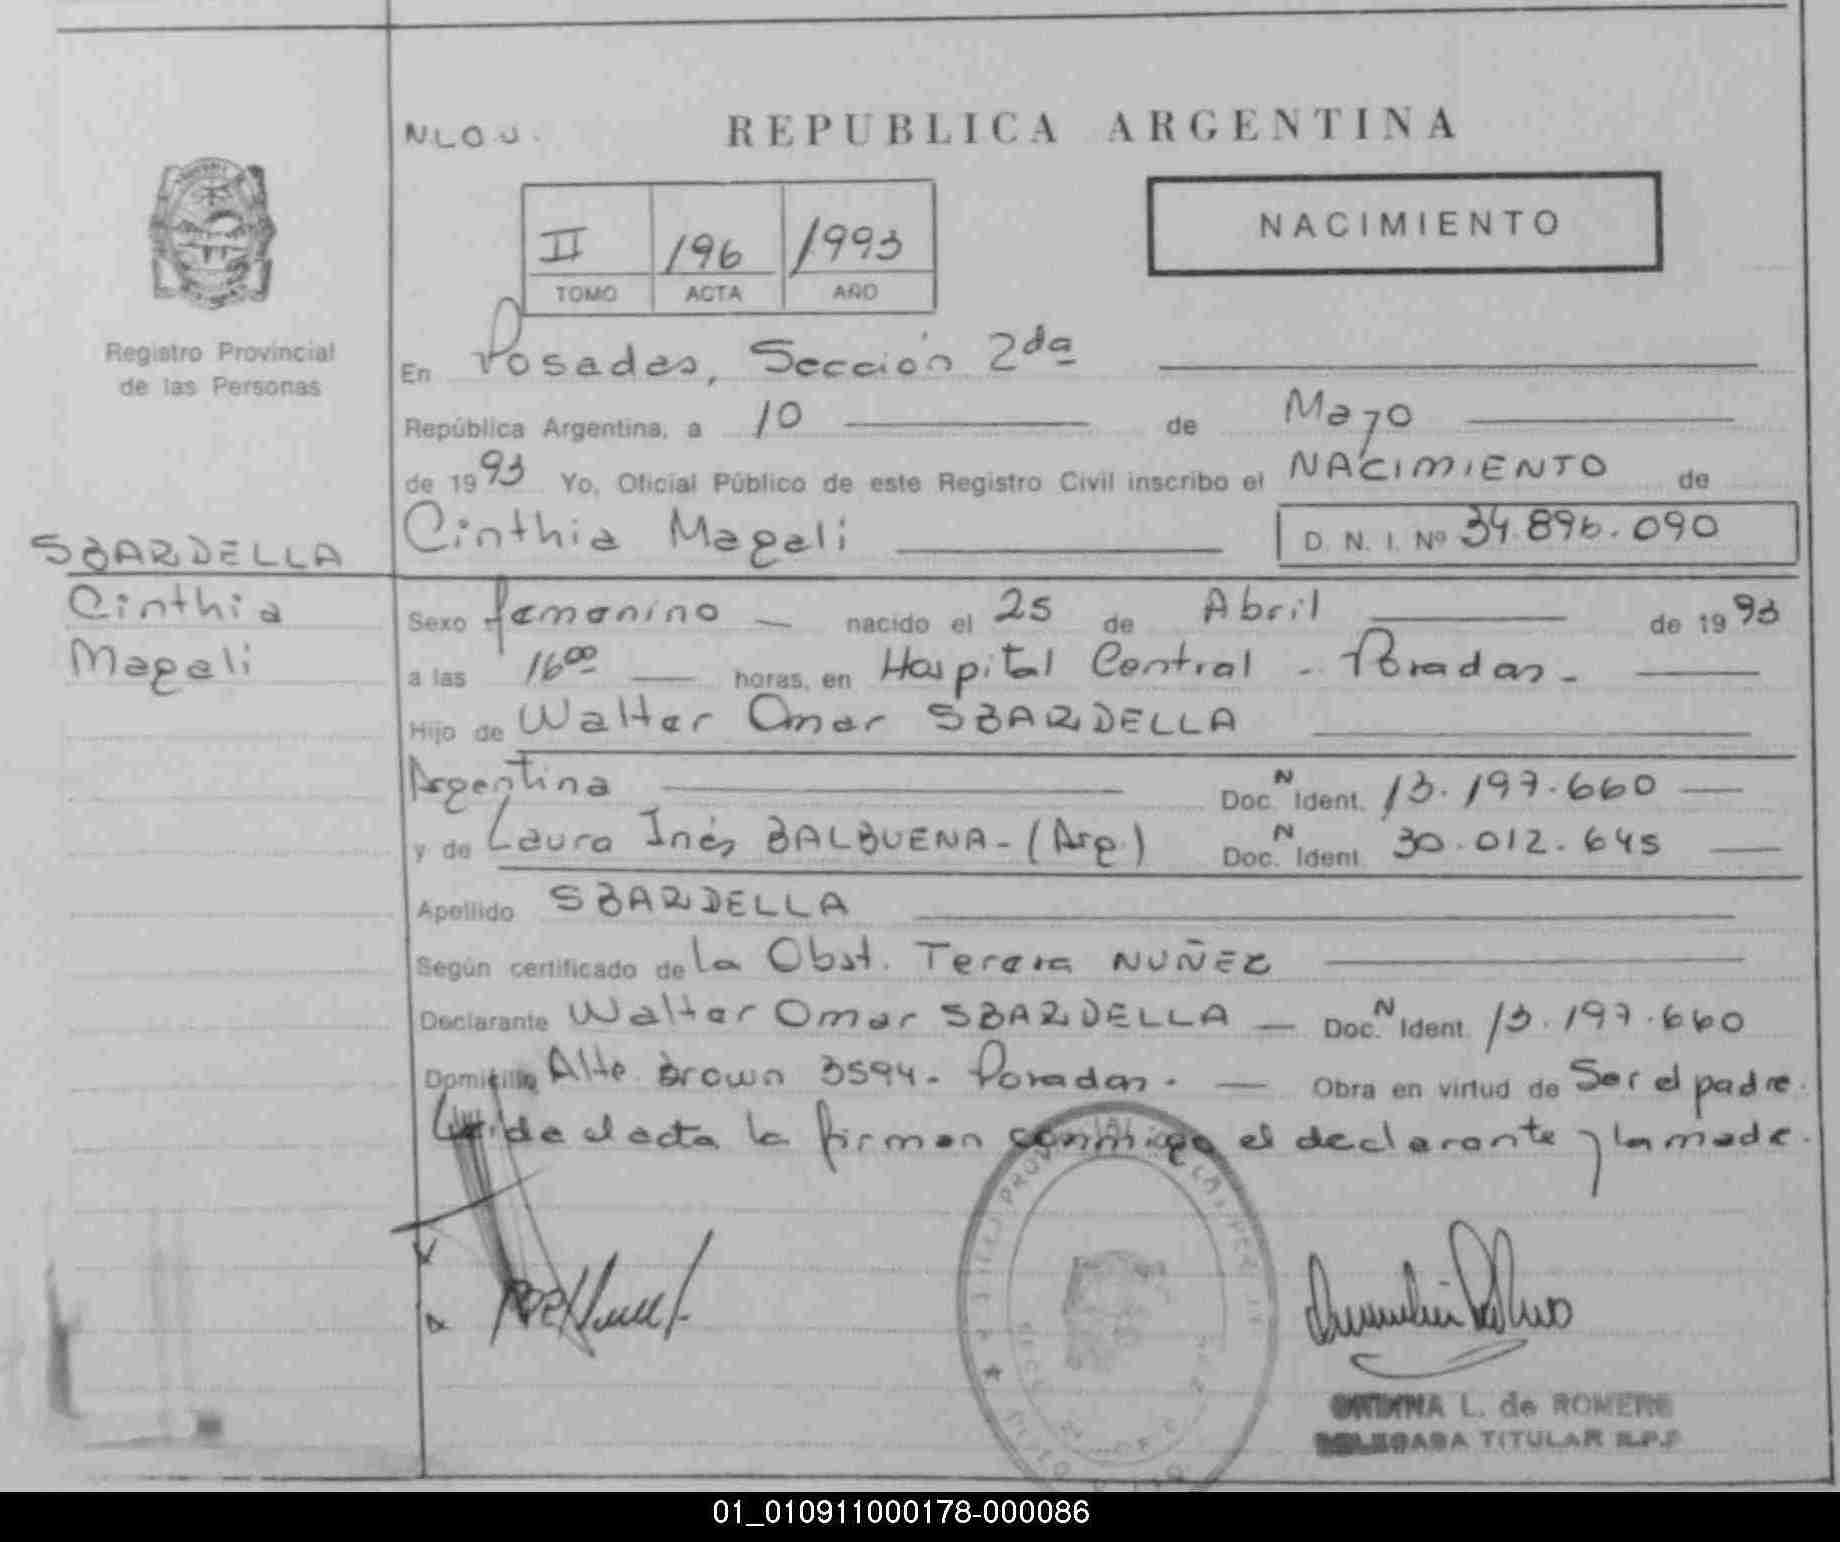 N.L.O.J.
REPUBLICA ARGENTINA
II 196 1993
TOMO ACTA AÑO
NACIMIENTO
Registro Provincial
de las Personas
En Posadas, Sección 2da
República Argentina, a 10 de Mayo
de 1993 Yo, Oficial Público de este Registro Civil inscribo el NACIMIENTO de
Cinthia Magali
D. N. I. Nº 34.896.090
SBARDELLA
Cinthia
Magali
Sexo femenino — nacido el 25 de Abril de 1993
a las 16 00 — horas, en Hospital Central - Posadas. —
Hijo de Walter Omar SBARDELLA
Argentina Doc. N Ident. 13.197.660 —
y de Laura Inés BALBUENA - (Arg.) Doc. N Ident. 30.012.645 —
Apellido SBARDELLA
Según certificado de la Obst. Teresa NUÑEZ
Declarante Walter Omar SBARDELLA — Doc. N Ident. 13.197.660
Domicilio Alte. Brown 3594 - Posadas. — Obra en virtud de Ser el padre.
Leida el acta la firman conmigo el declarante y la madre.
L. de ROMERO
DELEGADA TITULAR R.P.P
01_010911000178-000086